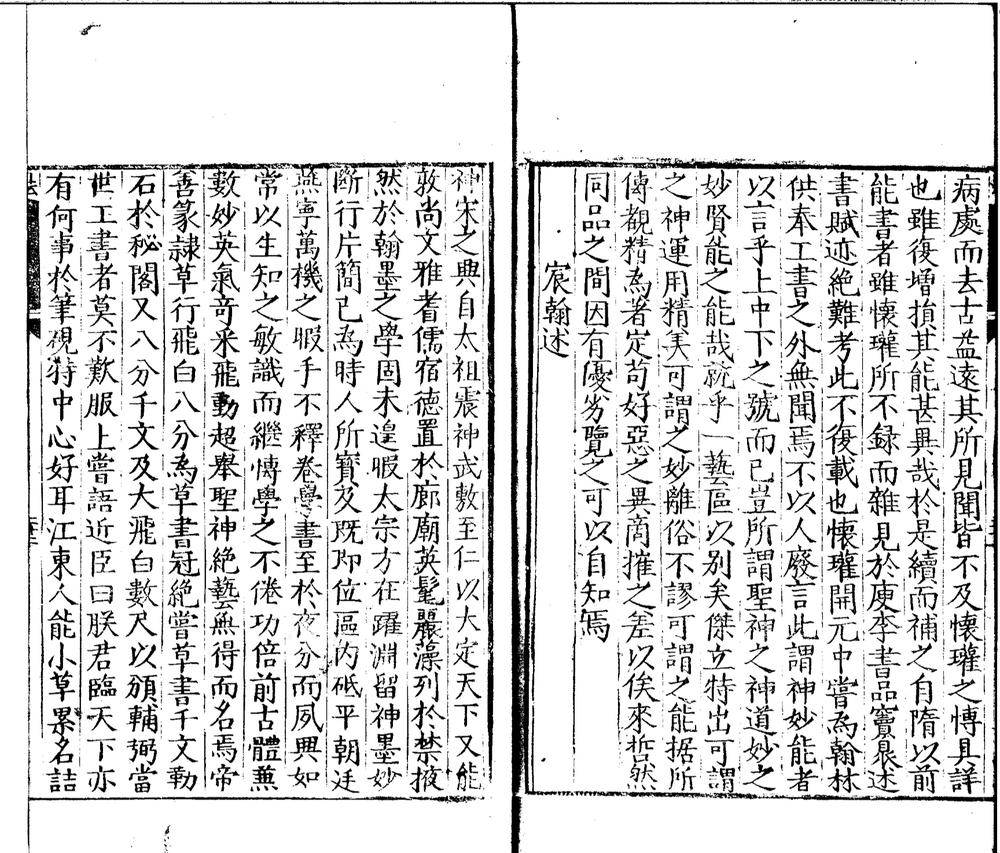 病處而去古益遠其所見聞皆不及懷瓘之博具詳
也雖復增損其能甚異哉於是續而補之自隋以前
能書者雖懷瓘所不録而雜見於庾李書品竇臮述
書賦迹絶難考此不復載也懷瓘開元中嘗為翰林
供奉工書之外無聞焉不以人廢言此謂神妙能者
以言乎上中下之號而已豈所謂聖神之神道妙之
妙賢能之能哉就乎一藝區以别矣傑立特出可謂
之神運用精美可謂之妙離俗不謬可謂之能据所
傳觀精為著定苟好惡之異商搉之差以俟來哲然
同品之間因有優劣覽之可以自知焉
宸翰述
神宋之興自太祖震神武敷至仁以大定天下又能
敦尚文雅耆儒宿德置於廊廟英髦麗藻列於禁掖
然於翰墨之學固未遑暇太宗方在躍淵留神墨妙
斷行片簡已為時人所寳及既即位區内砥平朝廷
燕寧萬機之暇手不釋卷學書至於夜分而夙興如
常以生知之敏識而繼博學之不倦功倍前古體兼
數妙英氣奇采飛動超舉聖神絶藝無得而名焉帝
善篆隷草行飛白八分為草書冠絶嘗草書千文勒
石於秘閣又八分千文及大飛白數尺以頒輔弼當
世工書者莫不歎服上嘗語近臣曰朕君臨天下亦
有何事於筆硯特中心好耳江東人能小草累名詰